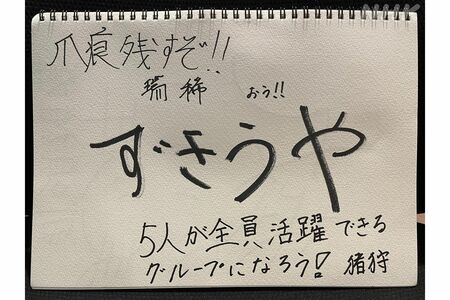 NHK
爪痕残すぞ!!
瑞稀 おう!!
ずきうや
5人が全員活躍できる
グループになろう! 猪狩